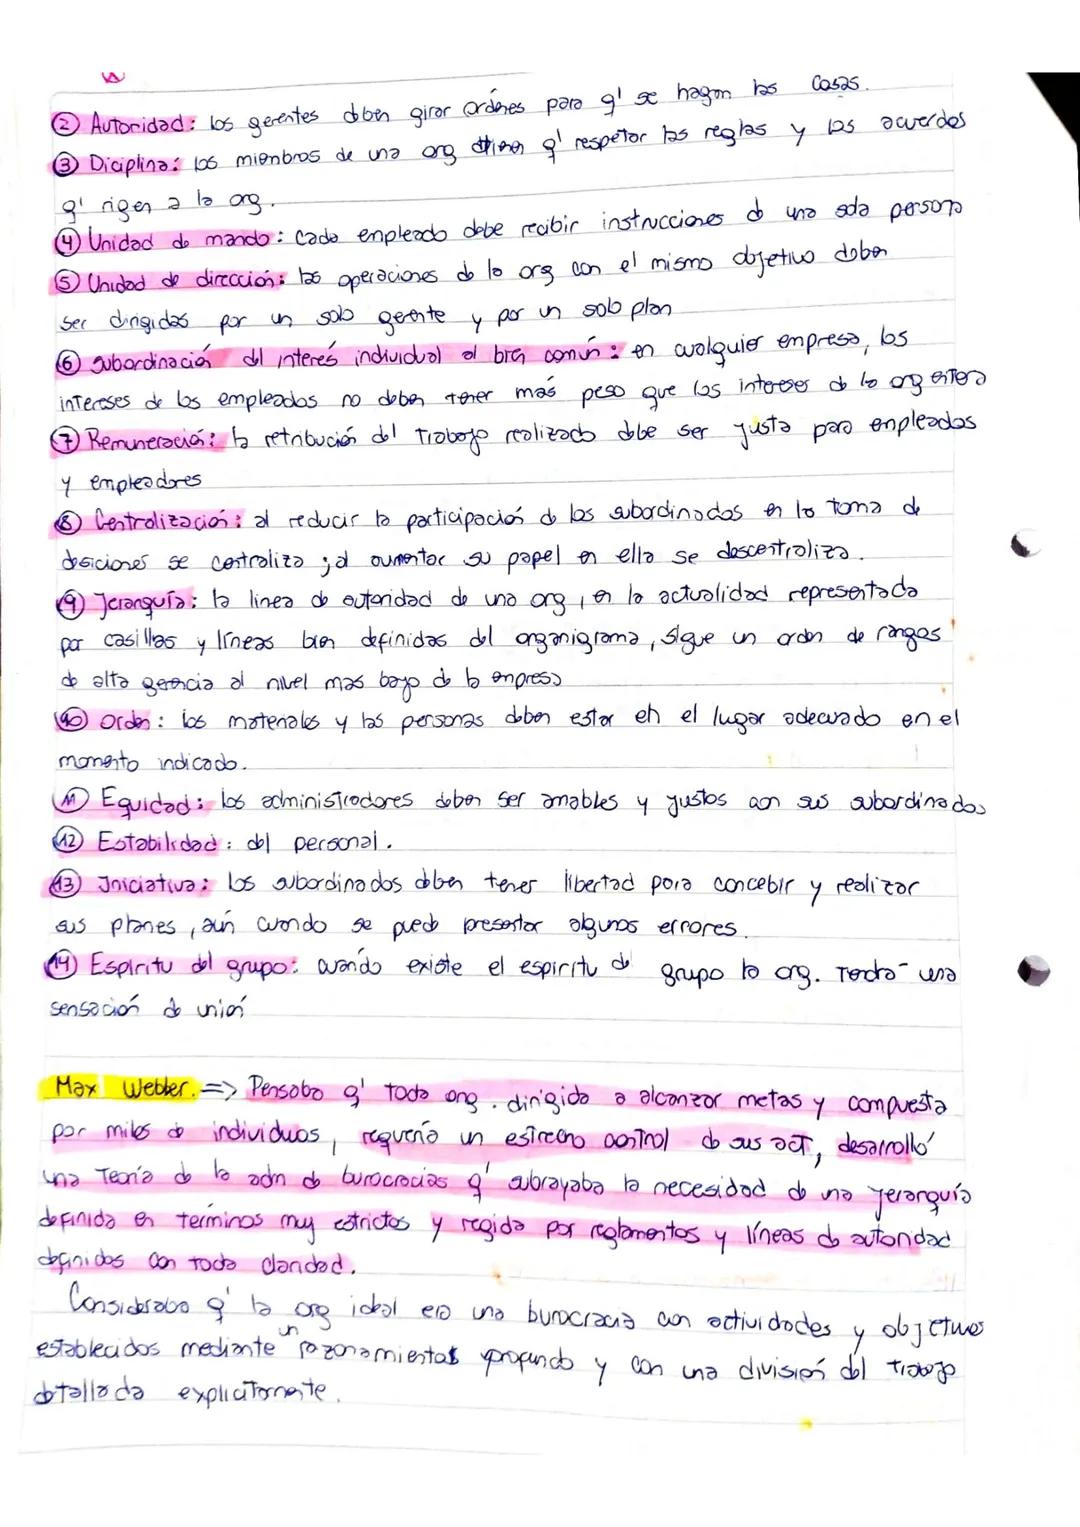 ② Autoridad: los gerentes deben girar ordenes para q' se hagan las cosas.
③ Diciplina: los miembros de una org tienen q' respetar las reglas y los acuerdos
q' rigen a la org.
④ Unidad de mando: cada empleado debe recibir instrucciones de una sola persona
⑤ Unidad de dirección: las operaciones de la org con el mismo objetivo deben
ser dirigidas por un solo gerente y por un solo plan
⑥ subordinación del interés individual al bien común: en cualquier empresa, los
intereses de los empleados no deben tener más peso que los intereses de la org entera
⑦ Remuneración: la retribución del trabajo realizado debe ser justa para empleados
y empleadores
⑧ Centralización: al reducir la participación de los subordinados en la toma de
desiciones se centraliza; al aumentar su papel en ella se descentraliza.
⑨ Jerarquía: la linea de autoridad de una org, en la actualidad representada
por casillas y líneas bien definidas del organigrama, sigue un orden de rangos
de alta gerencia al nivel mas bajo de la empresa
⑩ Orden: los materiales y las personas deben estar en el lugar adecuado en el
momento indicado.
⑪ Equidad: los administradores deben ser amables y justos con sus subordinados
⑫ Estabilidad: del personal.
⑬ Iniciativa: los subordinados deben tener libertad para concebir y realizar
sus planes, aún cuando se puede presentar algunos errores.
⑭ Espiritu del grupo: cuando existe el espiritu de grupo la org. Tendra una
sensación de unión
Max Webber. => Pensaba q' toda org. dirigida a alcanzar metas y compuesta
por miles de individuos, requería un estrecho control de sus act, desarrolló
una Teoría de la adm de burocracias q' subrayaba la necesidad de una jerarquía
definida en terminos muy estrictos y regida por reglamentos y líneas de autoridad
definidos con toda claridad.
Consideraba q' la org ideal era una burocracia con actividades y objetivos
establecidos mediante un razonamientos profundo y con una división del trabajo
detallada explicitamente.